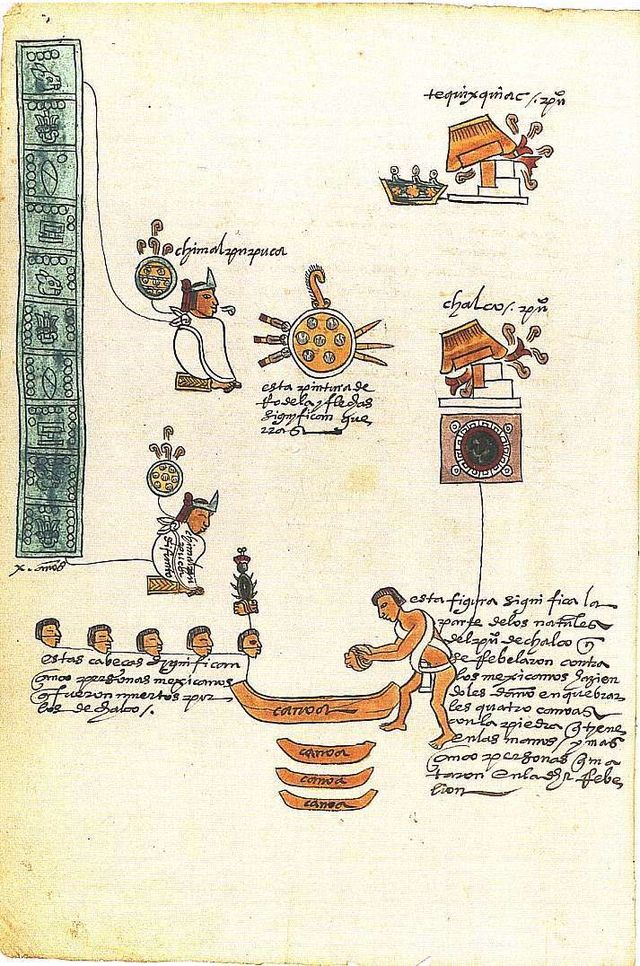 tequixquiac / . pu̅
chimalpupuca
chalco / . pu̅
esta pintura de
Rodela y flechas
significan gue
rras
x . años
estas cabezas significan
çinco personas mexicanos
q̅ fueron muertos por
los de chalco / .
esta figura signi fica la
parte de los natu̅ales
del pu̅ de chalco q̅
se Rebelaron contra
los mexicanos hazien
doles daño en quebrar
les quatro canoas
con la piedra q̅ tiene
en las manos / y mas
çinco personas q̅ ma
taron en la dh̅a Rebe
lion
canoa
canoa
canoa
canoa